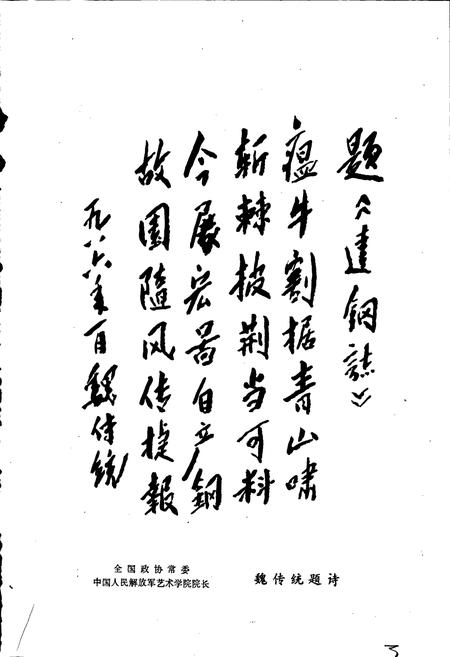 题《达钢志》
瘟牛割据青山啸
斩棘披荆当可料
今展宏图自立钢
故园随风传捷报
一九八六年一月魏传统
全国政协常委
中国人民解放军艺术学院院长
魏传统题诗
3